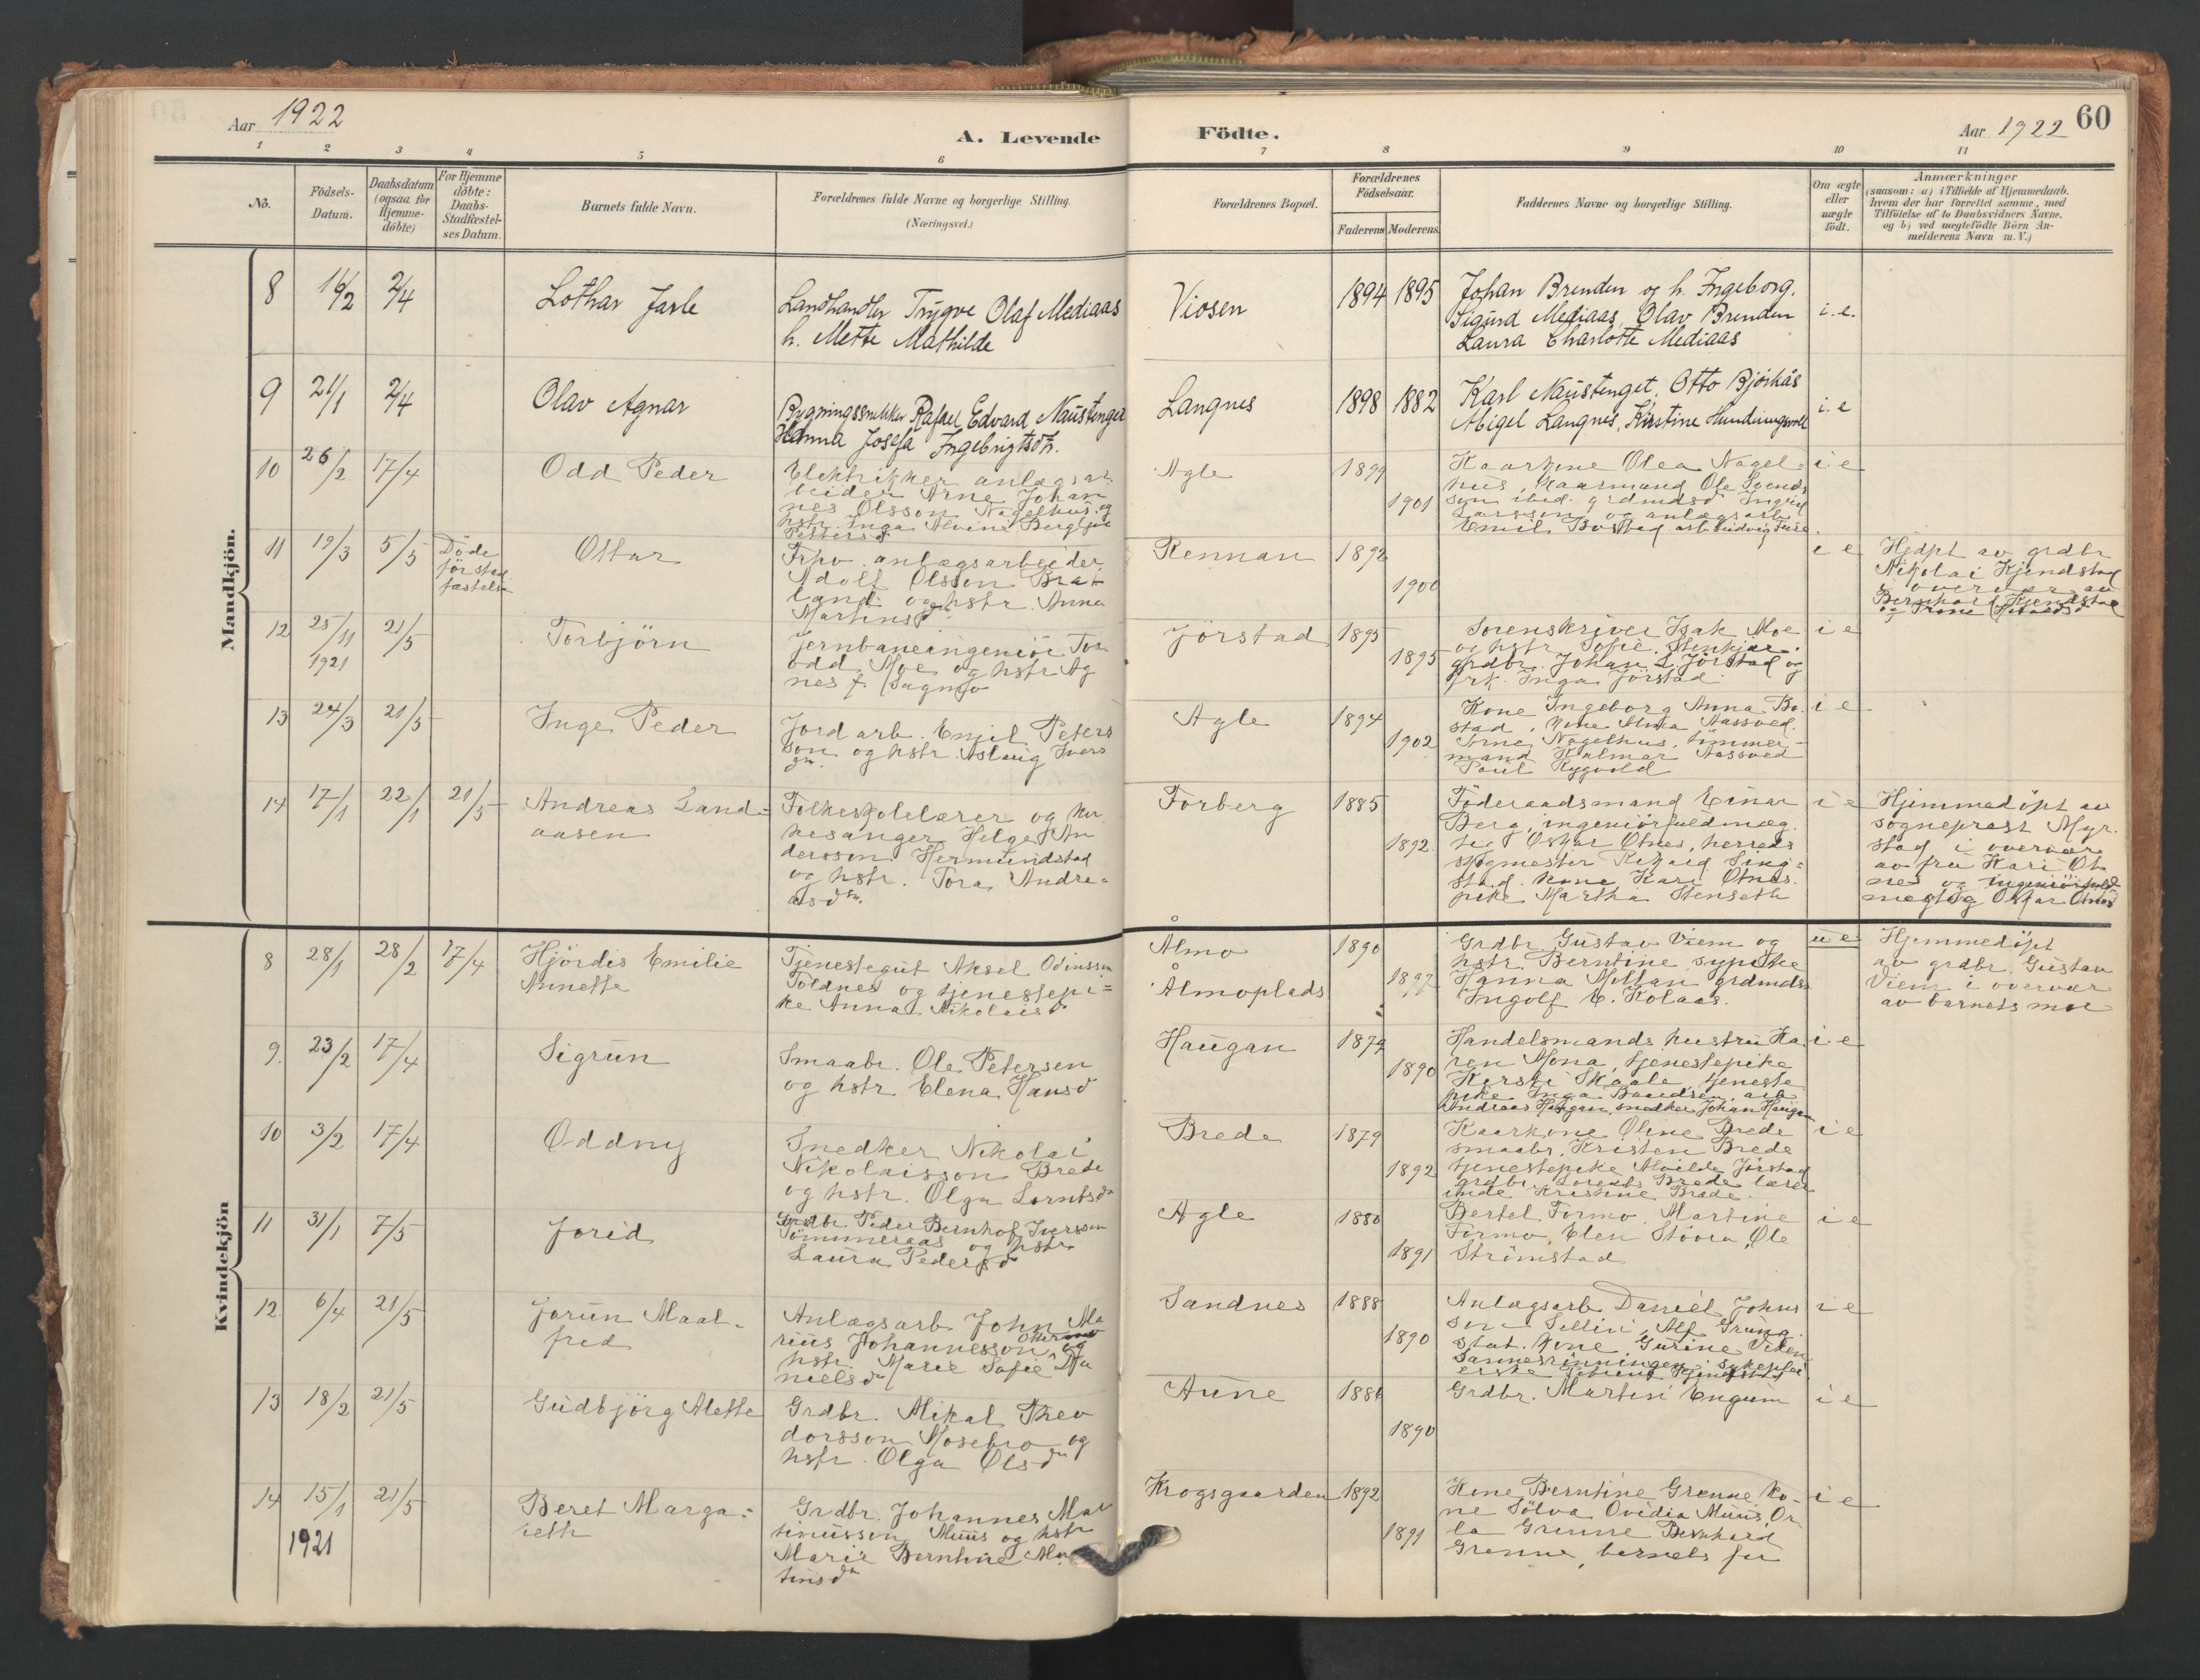 Aar 1922
A. Levende Födte.
Aar 1922 60
1 2 3 4 5 6 7 8 9 10 11
No.
Födsels-
Datum.
Daabsdatum
(ogsaa for
Hjemme-
döbte)
For Hjemme
döbte:
Daabs-
Stadfæstel-
ses Datum.
Barnets fulde Navn.
Forældrenes fulde Navne og borgerlige Stilling.
(Næringsvei.)
Forældrenes Bopæl.
Forældrenes
Födselsaar.
Faderens Moderens
Faddernes Navne og borgerlige Stilling.
Om ægte
eller
uægte
födt.
Anmærkninger
(saasom: a) i Tilfælde af Hjemmedaab,
hvem der har forrettet samme, med
Tilföielse af to Daabsvidners Navne.
og b) ved uægtefödte Börn An-
melderens Navn m.V.)
Mandkjön.
8 16/2 2/4 Lothar Jarle
Landhandler Trygve Olaf Mediaas
h. Mette Mathilde
Viosen 1894 1895
Johan Brenden og h. Ingeborg.
Sigurd Mediaas, Olav Brenden
Laura Charlotte Mediaas
i.e.
9 21/1 2/4 Olav Agnar
Bygningssnekker Rafael Edvard Naustenget
Hanna Josefa Ingebrigtsdtr.
Langnes 1898 1882
Karl Naustenget, Otto Bjørkås
Abigel Langnes, Kirstine
i.e
10 26/2 17/4 Odd Peder
Elektrikker anlægsar-
beider Arne Johan
nes Olsson Nagelhus og
hstr. Inga Alvine Bergljot
Pettersd
Agle 1899 1901
Kaarkone Olea Nagel-
hus, kaarmand Ole Svends
son ibid. grdmdsd Ingrid
Larsson, og anlægsarb
Emil Bostad arb. Ludvig
i e
11 19/3 5/5
Döde
för stad
fæstelse
Ottar
Frpv. anlægsarbeider
Adolf Olsson Brat
land og hstr. Anna
Martinsd
Rennan 1892 1900
i e
Hjdpt av grdbr
Nikolai Kjendstad
i overvær av
Bernhard Kjendstad
og Trine
12 25/11 1921 21/5 Torbjörn
Jernbaneingeniör Tor
odd Moe og hstr Ag
nes f. Sagmo
Jörstad 1895 1895
Sorenskriver Isak Moe
og hstr Sofie, Stenkjær.
grdbr. Johan L. Jörstad og
frk. Inga Jörstad
i e
13 24/3 21/5 Inge Peder
Jordarb. Emil Peters
son og hstr. Aslaug Ivers
dtr.
Agle 1894 1902
Kone Ingeborg Anna Bo
stad, kone Alma Aassved.
Arne Nagelhus, tømmer-
mand Hjalmar Aassved
Paul Rygvold
i e
14 17/1 22/1 21/5 Andreas Land=
aasen
Folkeskolelærer og kir
kesanger Helge An
dersson Hermundstad
og hstr. Tora Andre-
asdtr.
Forberg 1885 1892
Föderaadsmand Einar
Berg, ingeniørfuldmæg.
tig Oskar Otnes, herreds
skogmester Rikard Sing=
stad. kone Kari Otnes.
pike Martha Stenseth
i e
Hjemmedöpt av
sogneprest Myr.
stad i overvær
av fru Kari Ot
nes og ingeniörfuld-
mægtig Oskar Otnes
Kvindekjön
8 28/1 28/2 17/4 Hjördis Emilie
Annette
Tjenestegut Aksel Odinsson
Foldnes og tjenestepi=
ke Anna Nikolaisd
Ålmo
Ålmoplads
1890 1897
Grdbr. Gustav Viem og
hstr. Berntine, sypike
Hanna Moltan grdmds
Ingolf E. Kolaas.
u e
Hjemmedöpt
av grdbr. Gustav
Viem i overvær
av barnets mor
9. 23/2 17/4 Sigrun
Smaabr. Ole Petersen
og hstr Elena Hansd
Haugan 1874 1890
Handelsmands hustru Ka
ren Mona, tjenestepike
Kirsti Skaale, tjeneste
pike Inga Baardsen, arb
Andreas Haugan, snedker Johan Haugan
i e
10 3/2 17/4 Oddny
Snedker Nikolai
Nikolaisson Brede
og hstr. Olga Lorntsd
Brede 1879 1892
Kaarkone Oline Brede
smaabr. Kristen Brede
tjenestepike Alvilde Jörstad
grdbr. Lorents Brede lærer
inde Kristine Brede.
i e
11 31/1 7/5 Jorid
Grdbr. Peder Bernhof Iversson
Tömmeraas og hstr
Laura Pedersd
Agle 1880 1891
Bertel Formo, Martine
Formo, Elen Stövra, Ole
Strömstad
i e
12. 6/4 21/5 Jorun Maal-
fred
Anlægsarb. John Ma
rius Johannesson og
hstr. Marie Sofie Da
nielsd
Sandnes 1888 1890
Anlægsarb Daniel Johns
son Selliri, Alf Grong
stat. kone Gurine Viken
Sannesrinningen, sykeplei
erske
i e
13 18/2 21/5 Gudbjörg Alette
Grdbr. Mikal Theo
dorsson Mosebro og
hstr. Olga Olsdtr
Aune 1886 1890
Grdbr. Martin Engum
i e
14 15/1 1921 21/5 Beret Marga=
reth
Grdbr. Johannes Mar
tinusson Muus og hstr
Marie Berntine Mar
tinsdtr
Krogsgaarden 1892 1891
Kone Berntine Grenne ko-
ne Sölva Ovidia Muus, Or
la Grenne Bernhard
Grenne, barnets far
i e